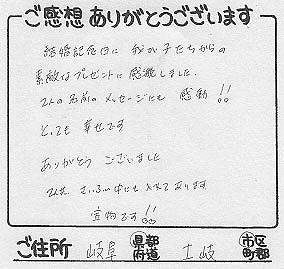 ご感想ありがとうございます
結婚記念日に 我が子たちからの
素敵なプレゼントに感激しました.
2人の名前のメッセージにも 感動!!
とても 幸せです
ありがとう ございました
さいふの中にも入れてあります
宝物です!!
ご住所 岐阜 県都府道 土岐 市区町郡